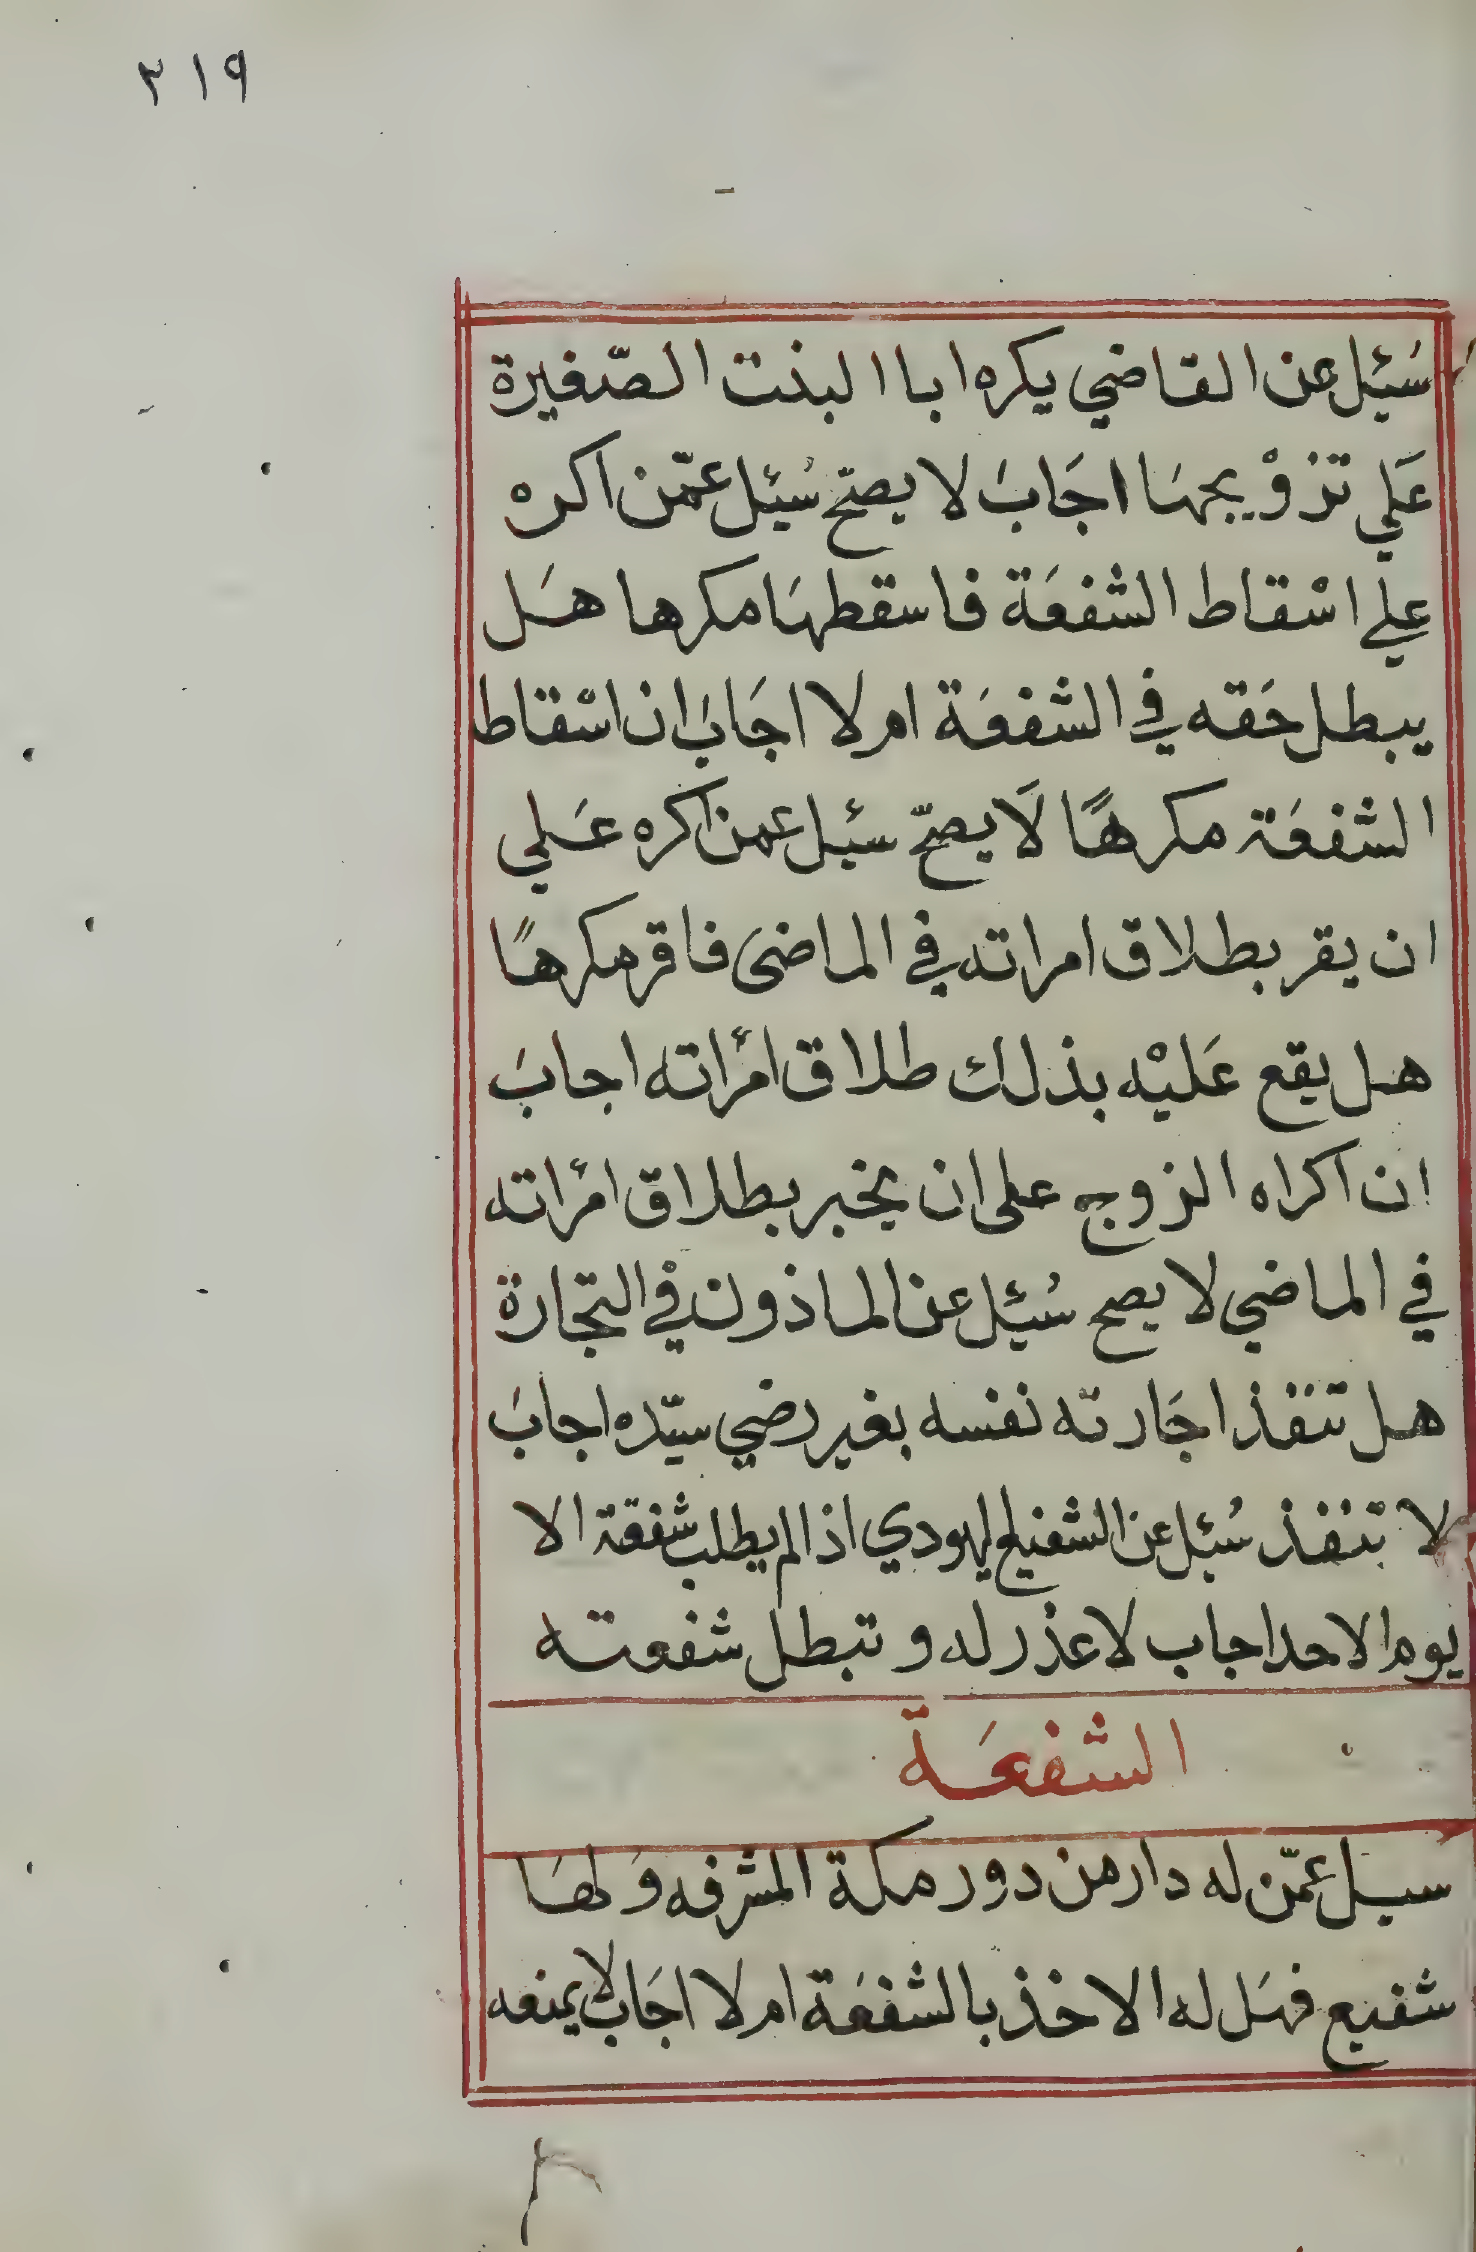 ٢١٩
سُئِل عن القاضي يكره ابا البنت الصّغيرة
عَلي تزوْيجهَا اجَابَ لا يصحّ سُئِل عمّن اكره
علي اسْقاط الشفعَة فاسقطهَا مكرها هَل
يبطل حَقه في الشفعَة ام لا اجَابَ ان اسْقاط
الشفعَة مكرهًا لَا يصحّ سئل عمن اكره عَلي
ان يقر بطلاق امراته في الماضى فاقر مكرهًا
هل يقع عَليْه بذلك طلاق امرأته اجابَ
ان اكراه الزوج على ان يخبر بطلاق امرأته
في الماضي لا يصح سُئِل عن الماذون في التجارة
هل تنفذ اجَارته نفسه بغير رضي سيّده اجابَ
لا تنفذ سُئِل عن الشفيع اليهودي اذا لم يطلب شفقة الا
يوم الاحد اجاب لا عذر له و تبطل شفعته
الشفعَة
سيل عمّن له دار من دور مكة المشرفه وَلهَا
شفيع فهَل له الاخذ بالشفعَة ام لا اجَاب لا يمنعه